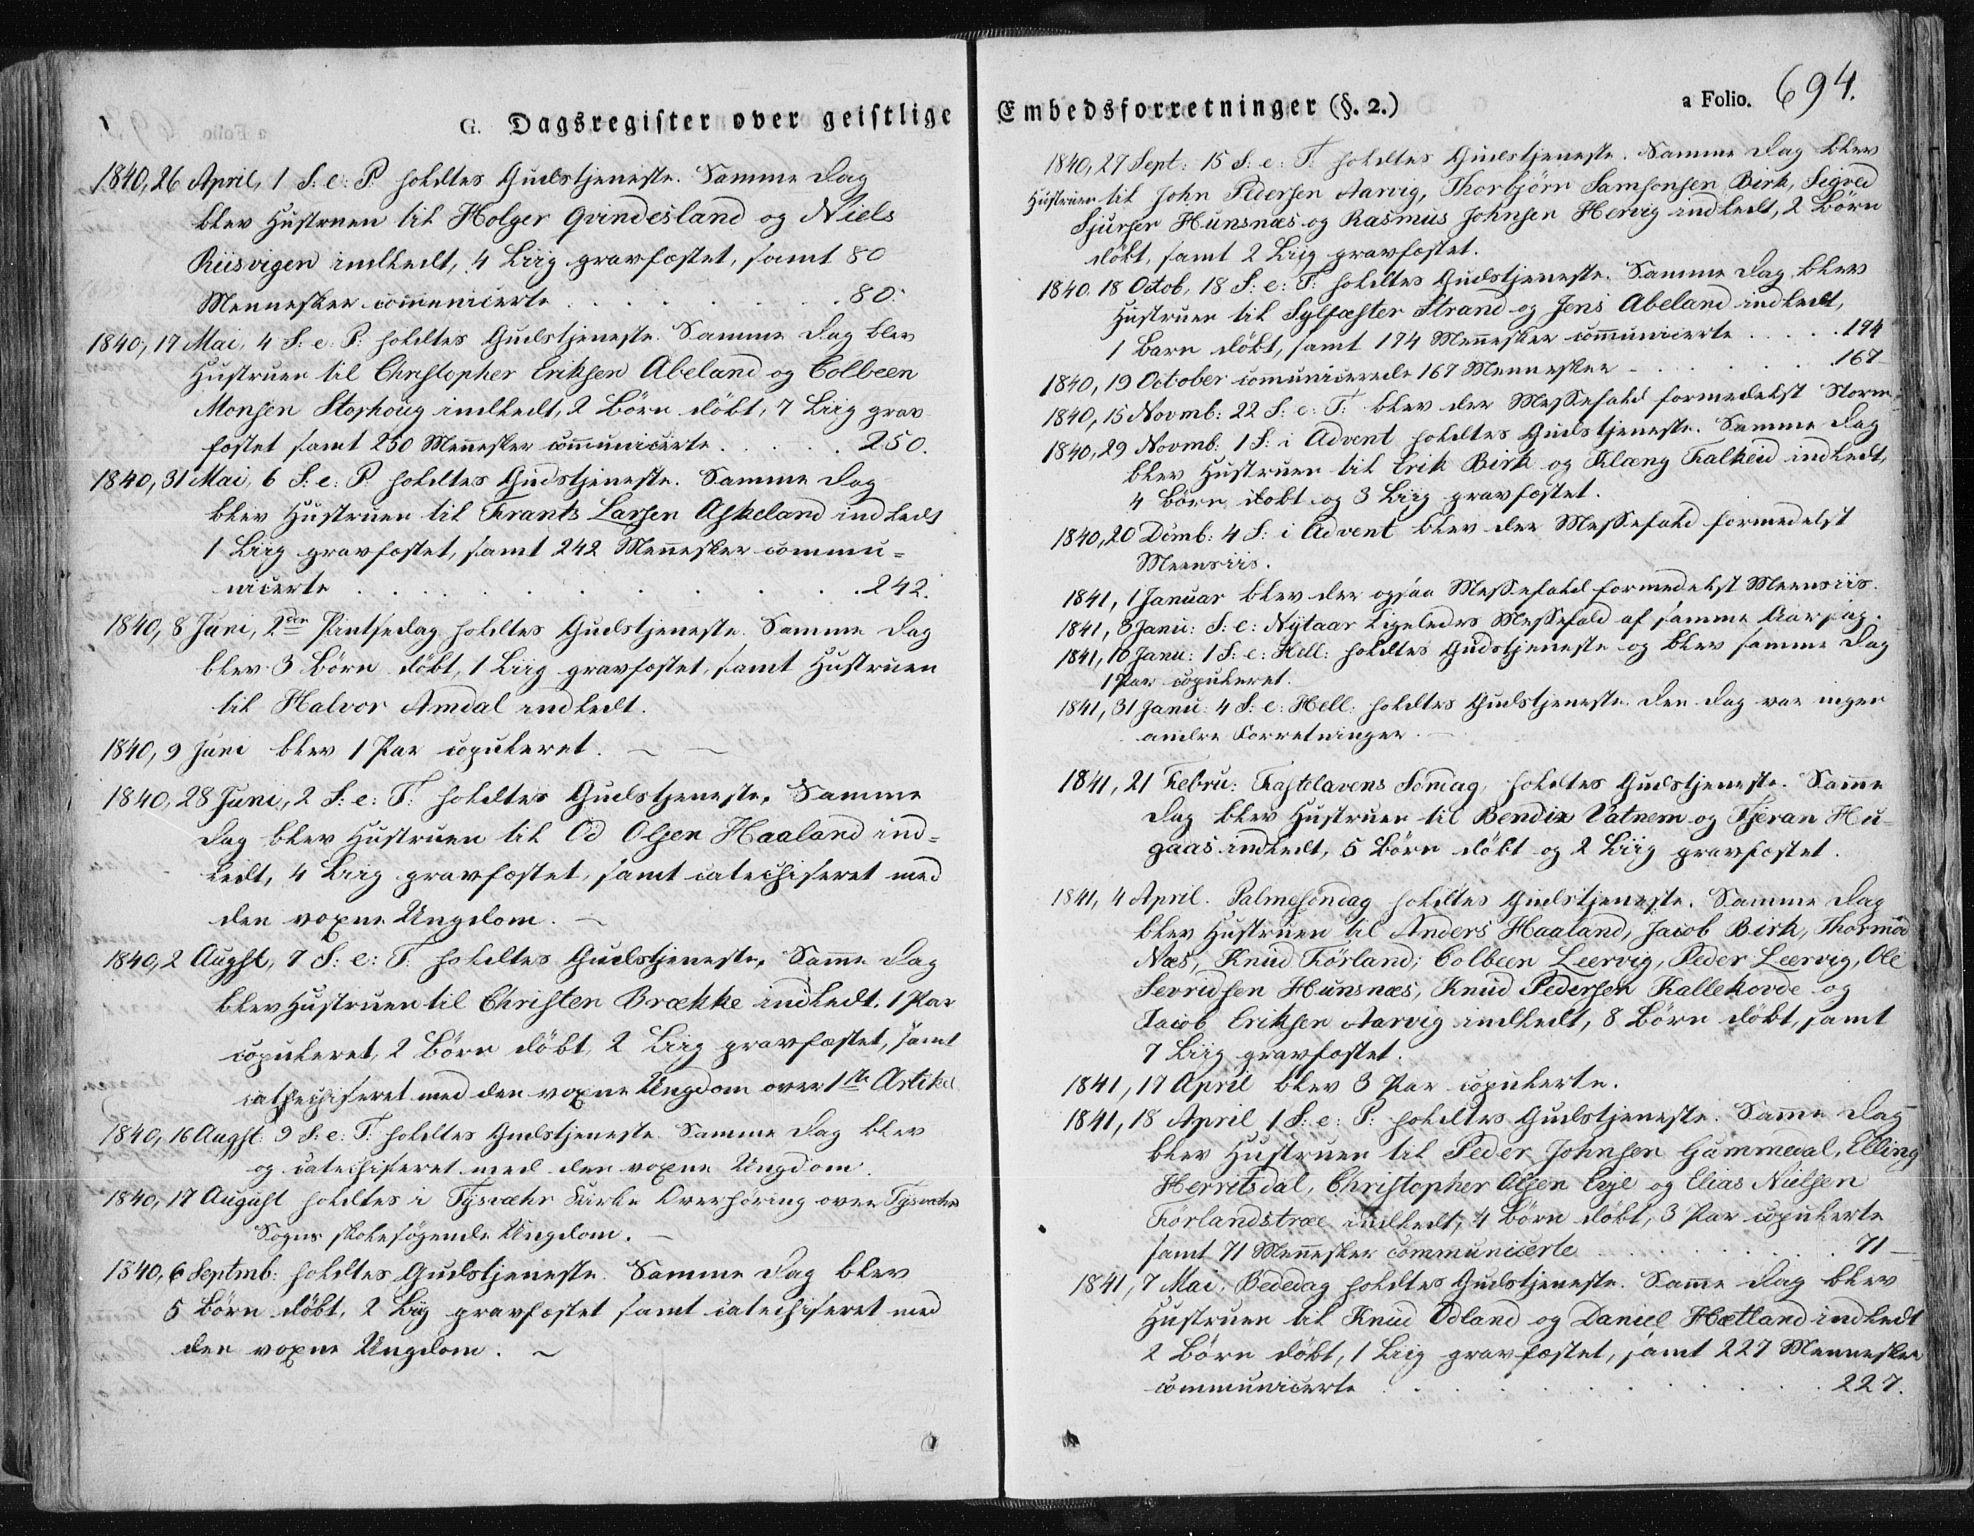 G. Dagsregister over geistlige
1840, 26 April, 1 S: e: P: holdtes Gudstjeneste. Samme Dag
blev Hustruen til Holger Qvindesland og Niels
Riisvigen indledt, 4 Liig gravfæstet, samt 80
Mennesker communicerte . . . . . . 80.
1840, 17 Mai, 4 S: e: P: holdtes Gudstjeneste. Samme Dag blev
Hustruen til Christopher Eriksen Abeland og Colbeen
Monsen Storhoug indledt, 2 Börn döbt, 7 Liig grav
fæstet samt 250 Mennesker communicerte . . . . . 250.
1840, 31 Mai, 6 S: e: P: holdtes Gudstjeneste. Samme Dag
blev Hustruen til Frants Larsen Askeland indledt
1 Liig gravfæstet, samt 242 Mennesker commu=
nicerte . . . . . . . . . 242.
1840, 8 Juni, 2den Pintsedag holdtes Gudstjeneste. Samme Dag
blev 3 Börn döbt, 1 Liig gravfæstet, samt Hustruen
til Halvor Amdal indledt.
1840, 9 Juni blev 1 Par copuleret.
1840, 28 Juni, 2 S: e: T: holdtes Gudstjeneste, Samme
Dag blev Hustruen til Od Olsen Haaland ind=
ledt, 4 Liig gravfæstet, samt catechiseret med
den voxne Ungdom.
1840, 2 Augst, 7 S: e: T: holdtes Gudstjeneste, Samme Dag
blev Hustruen til Christen Brække indledt. 1 Par
copuleret, 2 Börn döbt, 2 Liig gravfæstet, samt
cathechiseret med den voxne Ungdom over 1ste Artikel
1840, 16 Augst: 9 S: e: T: holdtes Gudstjeneste. Samme Dag blev
og catechiseret med den voxne Ungdom.
1840, 17 August holdtes i Tysvæhr Kirke Overhöring over Tysvæhr
Sogns skolesøgende Ungdom.
1840, 6 Septmb: holdtes Gudstjeneste. Samme Dag blev
5 Börn döbt, 2 Liig gravfæstet samt catechiseret med
den voxne Ungdom.
Embedsforretninger (§. 2.)
a Folio. 694.
1840, 27 Sept: 15 S: e: T: holdtes Gudstjeneste. Samme Dag blev
Hustruen til John Pedersen Aarvig, Thorbjörn Samsonsen Birk, Sigved
Sjurser Hunsnæs og Rasmus Johnsen Hervig indledt, 2 Börn
döbt, samt 2 Liig gravfæstet.
1840. 18 Octob, 18 S: e: T: holdtes Gudstjeneste. Samme Dag blev
Hustruen til Sylfæster Strand og Jens Abeland indledt,
1 Barn döbt, samt 174 Mennesker communicerte . . . . . 174
1840, 19 October communicerede 167 Mennesker . . . . . 167
1840, 15 Novmb: 22 S: e: T: blev der Messefald formedelst Storm
1840, 29 Novmb: 1 S: i Advent holdtes Gudstjeneste. Samme Dag
blev Hustruen til Erik Birk og Klæng Falkeid indledt,
4 Börn döbt og 3 Liig gravfæstet.
1840, 20 Dcmb: 4 S: i Advent blev der Messefald formedelst
Meensiis.
1841, 1 Januar blev der ogsaa Messefald formedelst Meensiis.
1841, 3 Janu: S: e: Nytaar Ligeledes Messefald af samme Aarsag.
1841, 10 Janu: 1 S: e: Hell: holdtes Gudstjeneste og blev samme Dag
1 Par copuleret.
1841, 31 Janu: 4 S: e: Hell: holdtes Gudstjeneste den Dag var ingen
andre Forretninger.
1841, 21 Febru: Fastelavens Söndag, holdtes Gudstjeneste. Samme
Dag blev Hustruen til Bendix Vatnem og Tjeran Hu-
gaas indledt, 5 Börn döbt og 2 Liig gravfæstet.
1841, 4 April. Palmesöndag holdtes Gudstjeneste. Samme Dag
blev Hustruen til Anders Haaland, Jacob Birk, Thormod
Næs, Knud Förland, Colbeen Leervig, Peder Leervig, Ole
Sevridsen Hunsnæs, Knud Pedersen Kallekovde og
Jacob Eriksen Aarvig indledt, 8 Börn döbt, samt
7 Liig gravfæstet.
1841, 17 April blev 3 Par copulerte.
1841, 18 April 1 S: e: P: holdtes Gudstjeneste. Samme Dag
blev Hustruen til Peder Johnsen Gammedal, Elling
Herritsdal, Christopher Olsen Evje og Elias Nielsen
Förlandstræe indledt, 4 Börn döbt, 3 Par copulerte
samt 71 Mennesker communicerte . . . . . . 71
1841, 7 Mai, Bededag holdtes Gudstjeneste. Samme Dag blev
Hustruen til Knud Odland og Daniel Hætland indledt
2 Börn döbt, 1 Liig gravfæstet, samt 227 Mennesker
communicerte . . . . . . . . . 227.